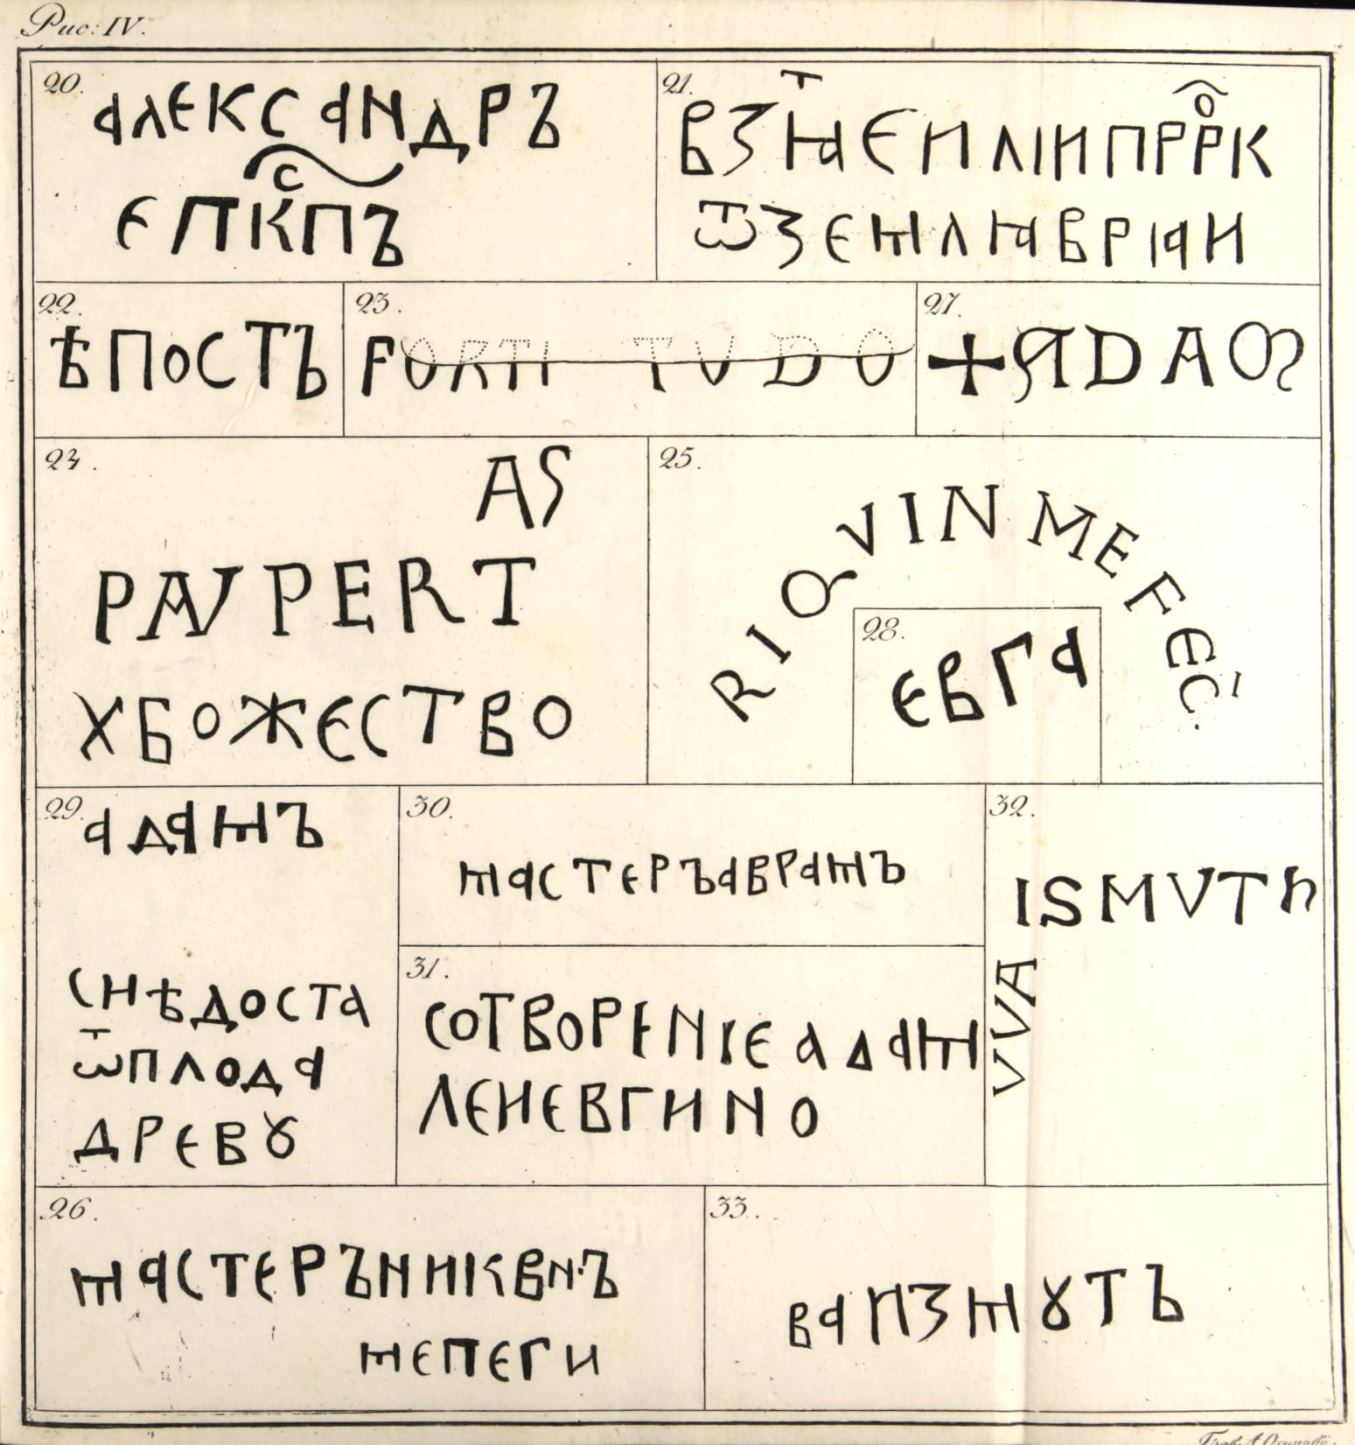 Рис: IV.
20.
АЛЕКСАНДРЪ
С
ЕПКПЪ
21.
ѾЗЕМЛѦВРІАИ
22.
ѢПОСТЪ
23.
FORTI TVDO
27.
+ ADAM
24.
AS
PAVPERT
ХБОЖЕСТВО
25.
RIQVIN ME FEC̄.
28.
ЕВГА
29.
АДАМЪ
СНѢДОСТА
ѾПЛОДА
ДРЕВꙊ
30.
МАСТЕРЪАВРАМЪ
31.
СОТВОРЕNІЕ АДАМ
ЛЕНЕВГИNО
32.
ISMVTH
VVA
26.
МАСТЕРЪ
МЕПЕГИ
33.
ВАИЗМꙊТЪ